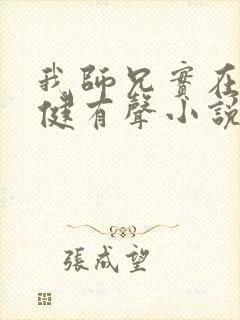 我師兄實在
健有聲小說
張成望